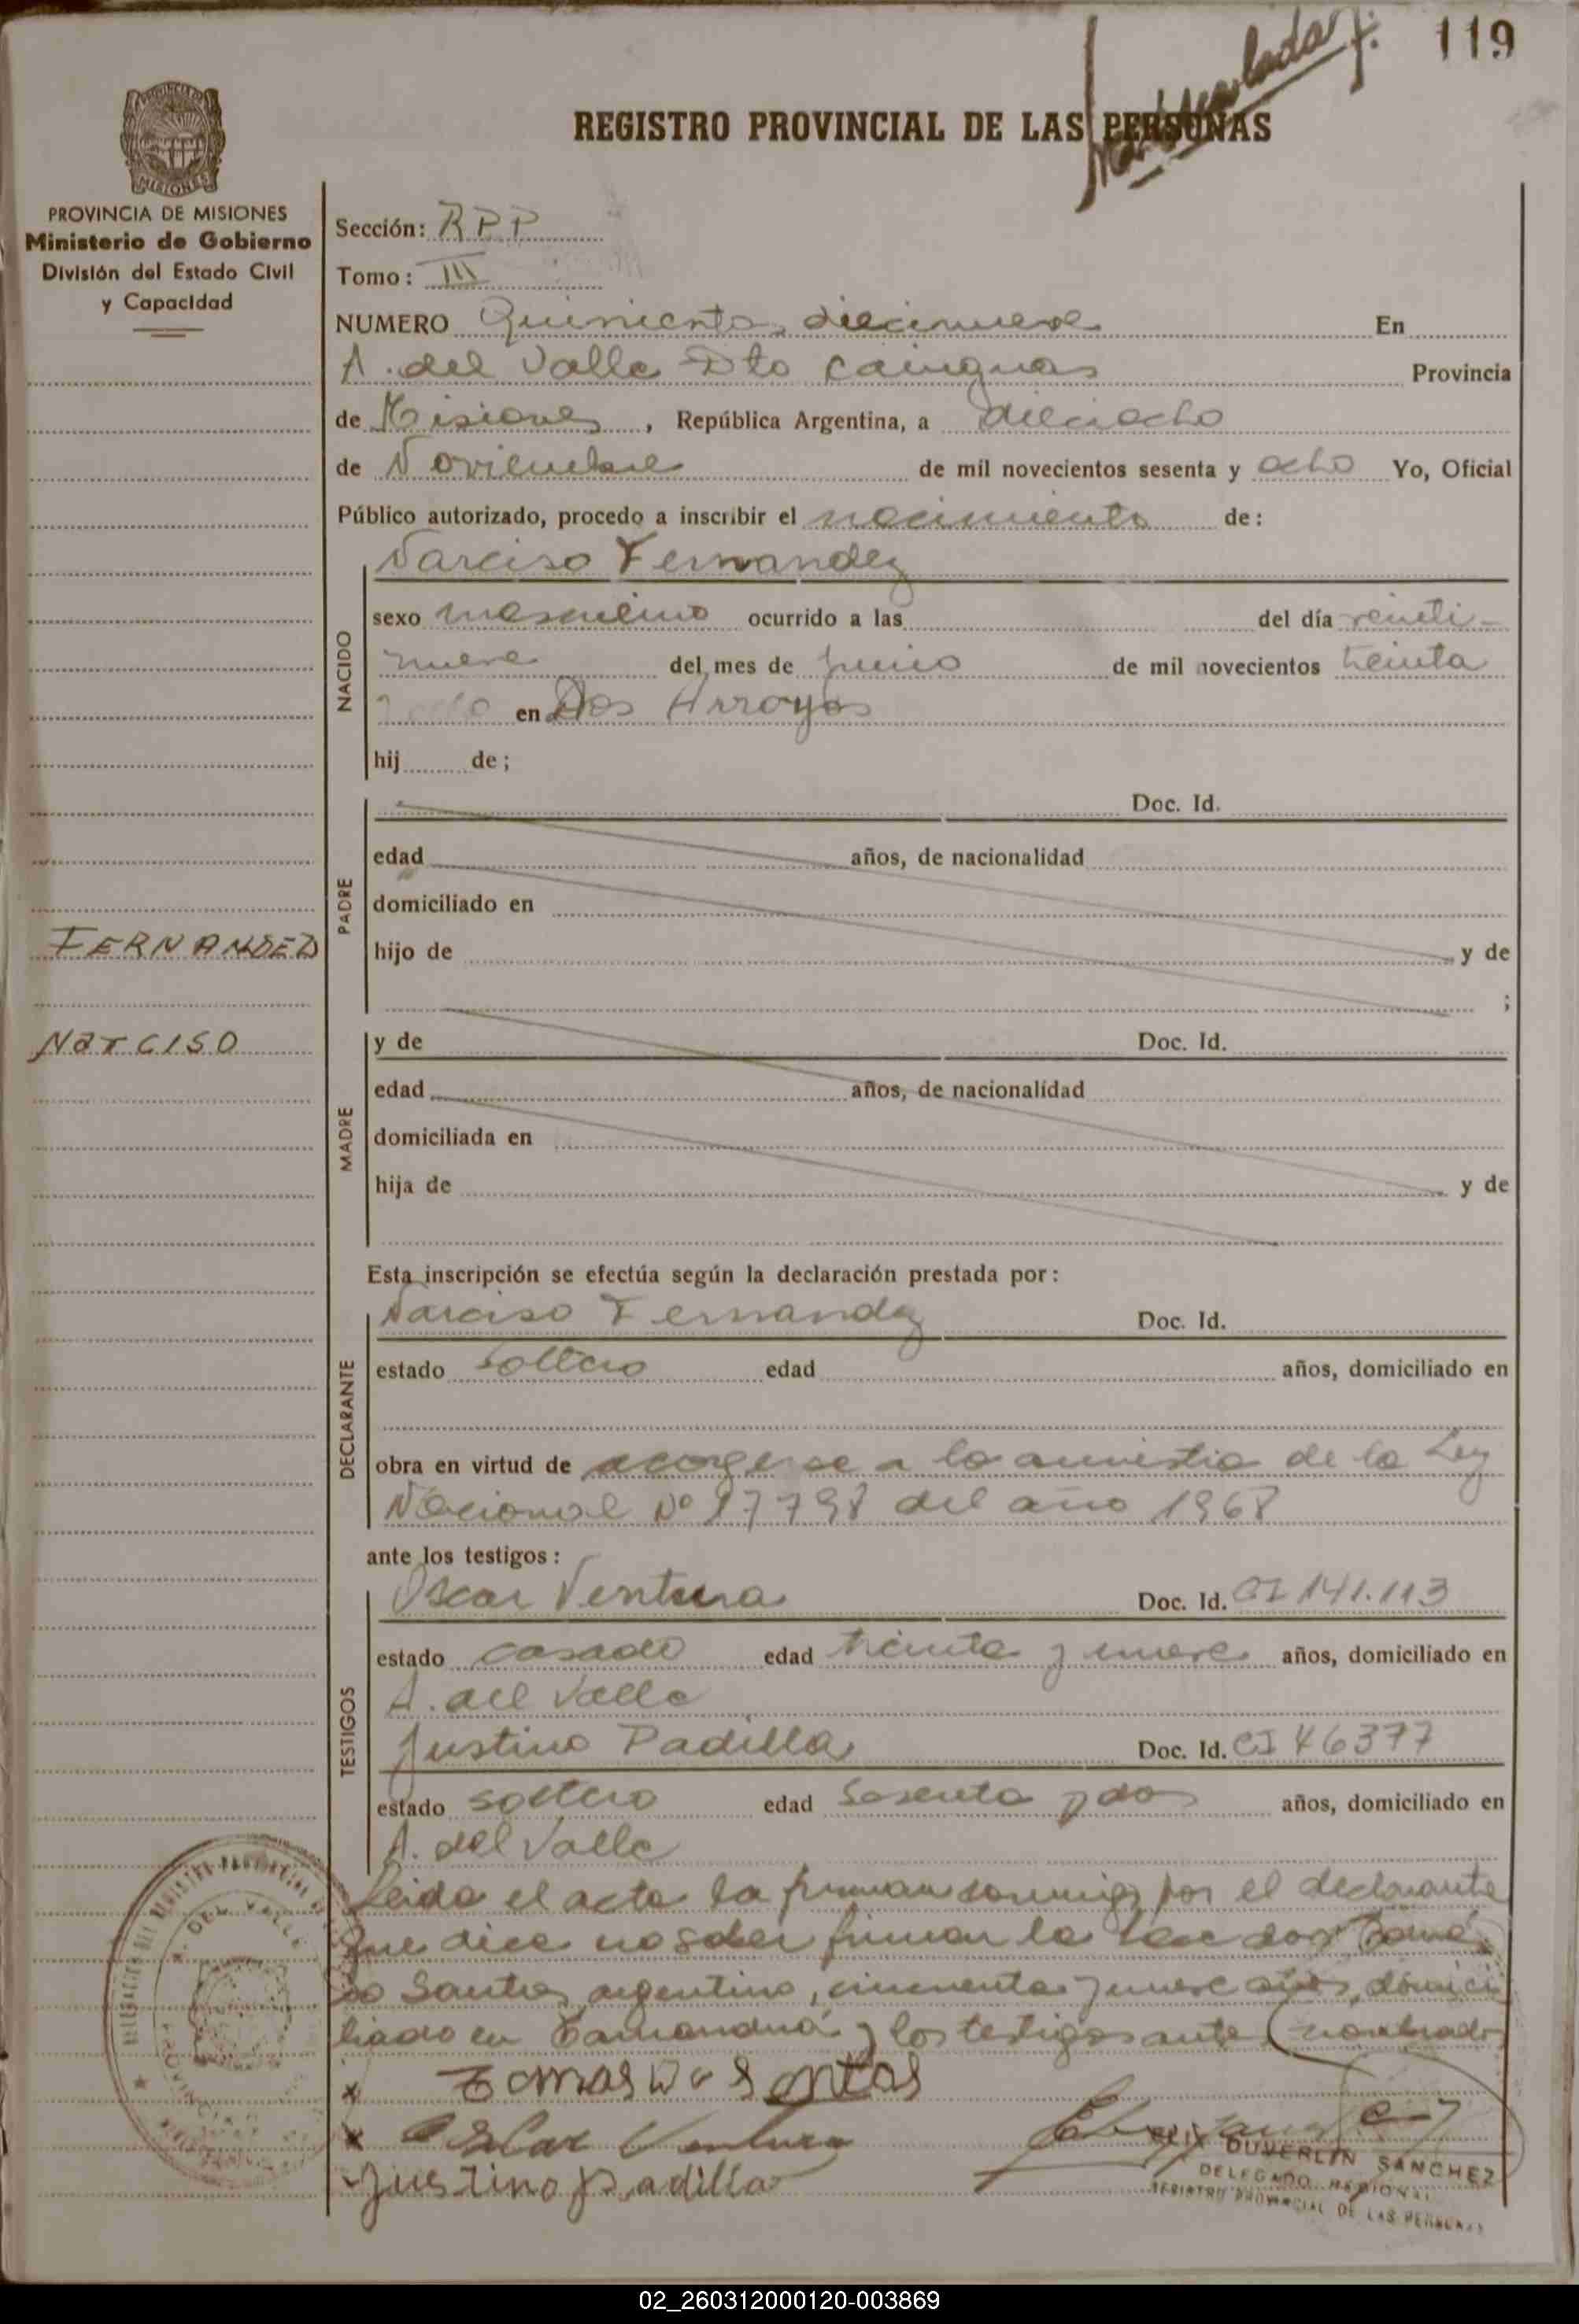 119
REGISTRO PROVINCIAL DE LAS PERSONAS
PROVINCIA DE MISIONES
Ministerio de Gobierno
División del Estado Civil
y Capacidad
Sección: RPP
Tomo: III
NUMERO Quinientos diecinueve En
A. del Valle Dto Cainguas Provincia
de Misiones, República Argentina, a dieciocho
de Noviembre de mil novecientos sesenta y ocho Yo, Oficial
Público autorizado, procedo a inscribir el nacimiento de:
NACIDO
Narciso Fernandez
sexo masculino ocurrido a las del día veinti-
nueve del mes de junio de mil novecientos treinta
en Dos Arroyos
hij de;
PADRE
Doc. Id.
edad años, de nacionalidad
domiciliado en
hijo de y de
;
FERNANDEZ
NarCISO
MADRE
y de Doc. Id.
edad años, de nacionalidad
domiciliada en
hija de y de
Esta inscripción se efectúa según la declaración prestada por:
DECLARANTE
Narciso Fernandez Doc. Id.
estado soltero edad años, domiciliado en
obra en virtud de acogerse a la amnistia de la Ley
Nacional Nº 17798 del año 1968
ante los testigos:
TESTIGOS
Oscar Ventura Doc. Id. CI 141.113
estado casado edad treinta y nueve años, domiciliado en
A. del Valle
Justino Padilla Doc. Id. CI 46377
estado soltero edad sesenta y dos años, domiciliado en
A. del Valle
Leida el acta la firman conmigo, por el declarante
que dice no saber firmar lo hace don
Santos, argentino, cincuenta y nueve años, domici
liado en Tamanduá y los testigos ante nombrados
x Tomas Dos Santos
x Oscar Ventura
Justino Padilla
DUVERLIN SANCHEZ
DELEGADO REGIONAL
REGISTRO PROVINCIAL DE LAS PERSONAS
DEL VALLE
02_260312000120-003869